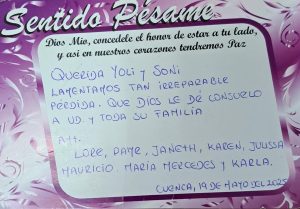 Sentido Pésame
Dios Mio, concedele el honor de estar a tu lado,
y así en nuestros corazones tendremos Paz
QUERIDA YOLI y SONI
LAMENTAMOS TAN IRREPARABLE
PÉRDIDA. QUE DIOS LE DÉ CONSUELO
A UD. Y TODA SU FAMILIA
Att.
LORE, DAYE, JANETH, KAREN, JULISSA
MAURICIO. MARÍA MERCEDES Y KARLA.
CUENCA, 19 DE MAYO DEL 2025